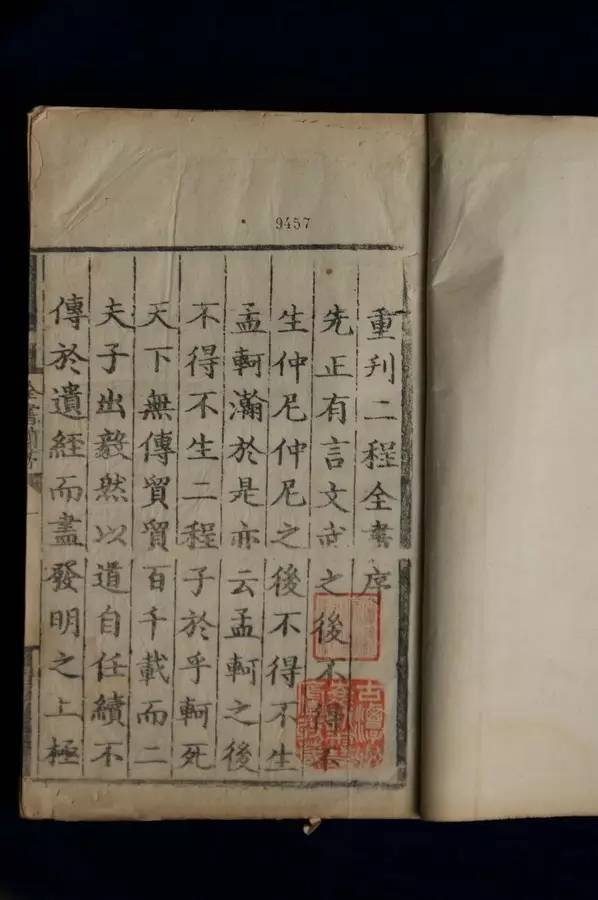 9457
重刋二程全書序
先正有言文武之後不得不
生仲尼仲尼之後不得不生
孟軻瀚於是亦云孟軻之後
不得不生二程子於乎軻死
天下無傳貿貿百千載而二
夫子出毅然以道自任續不
傳於遺經而盡發明之上極